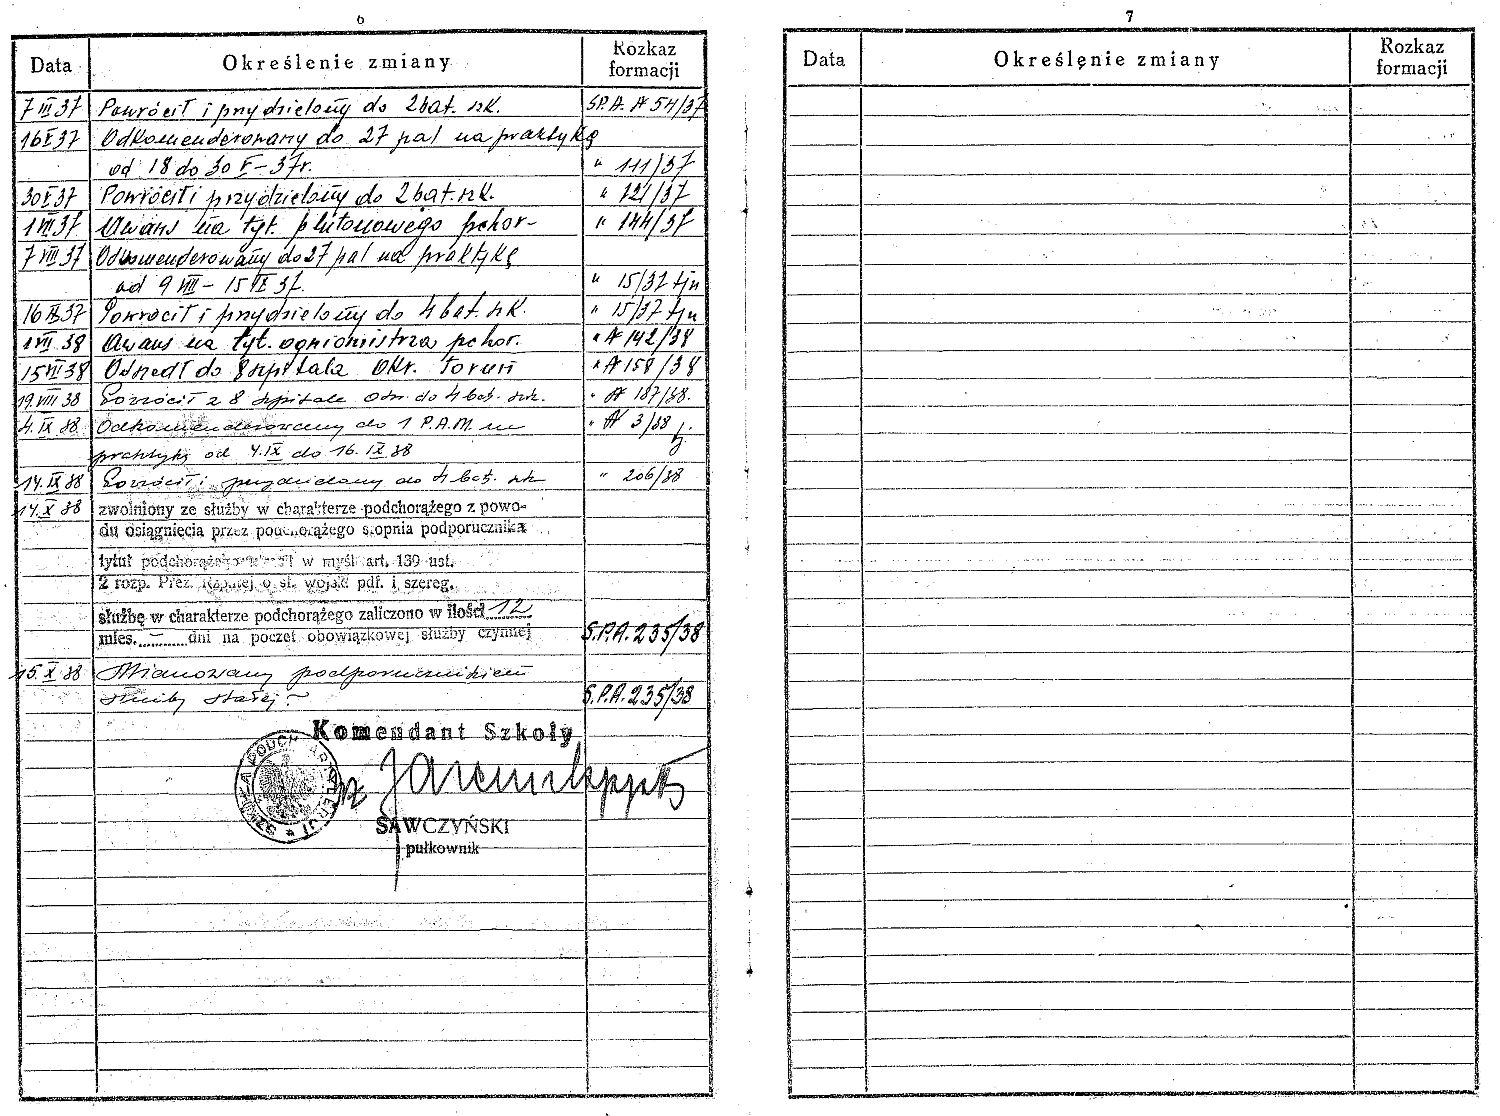 6
Data Określenie zmiany Rozkaz formacji
7 III 37 Powrócił i przydzielony do 2 bat. szk. S.P.A. № 54/37
16 V 37 Odkomenderowany do 27 pal na praktykę
od 18 do 30 V – 37r. " 111/37
30 V 37 Powrócił i przydzielony do 2 bat. szk. " 121/37
1 VII 37 Awans na tyt. plutonowego pchor– " 144/37
7 VIII 37 Odkomenderowany do 27 pal na praktykę
od 9 VIII – 15 IX 37. " 15/37 tjn
16 IX 37 Powrócił i przydzielony do 4 bat. szk. " 15/37 tjn
1 VII 38 Awans na tyt. ogniomistrza pchor. " № 142/38
15 VII 38 Odszedł do 8 szpitala Okr. Toruń " № 158/38
19 VIII 38 Powrócił z 8 szpitala Okr. do 4 bat. szk. " № 187/38.
4. IX 38 Odkomenderowany do 1 P.A.M. na " № 3/38
praktykę od 4. IX do 16. IX 38
14. IX 38 Powrócił i przydzielony do 4 bat. szk " 206/38
14. X 38 zwolniony ze służby w charakterze podchorążego z powo-
du osiągnięcia przez podchorążego stopnia podporucznika
tytuł podchorążego w myśl art. 139 ust.
2 rozp. Prez. Rzplitej o sł. wojsk pdf. i szereg.
służbę w charakterze podchorążego zaliczono w ilości 12
mies. – dni na poczet obowiązkowej służby czynnej S.P.A. 235/38
15. X 38 Mianowany podporucznikiem
służby stałej – S.P.A. 235/38
Komendant Szkoły
SZKOŁA PODCH. ARTYLERJI
wz
SAWCZYŃSKI
pułkownik
7
Data Określenie zmiany Rozkaz formacji